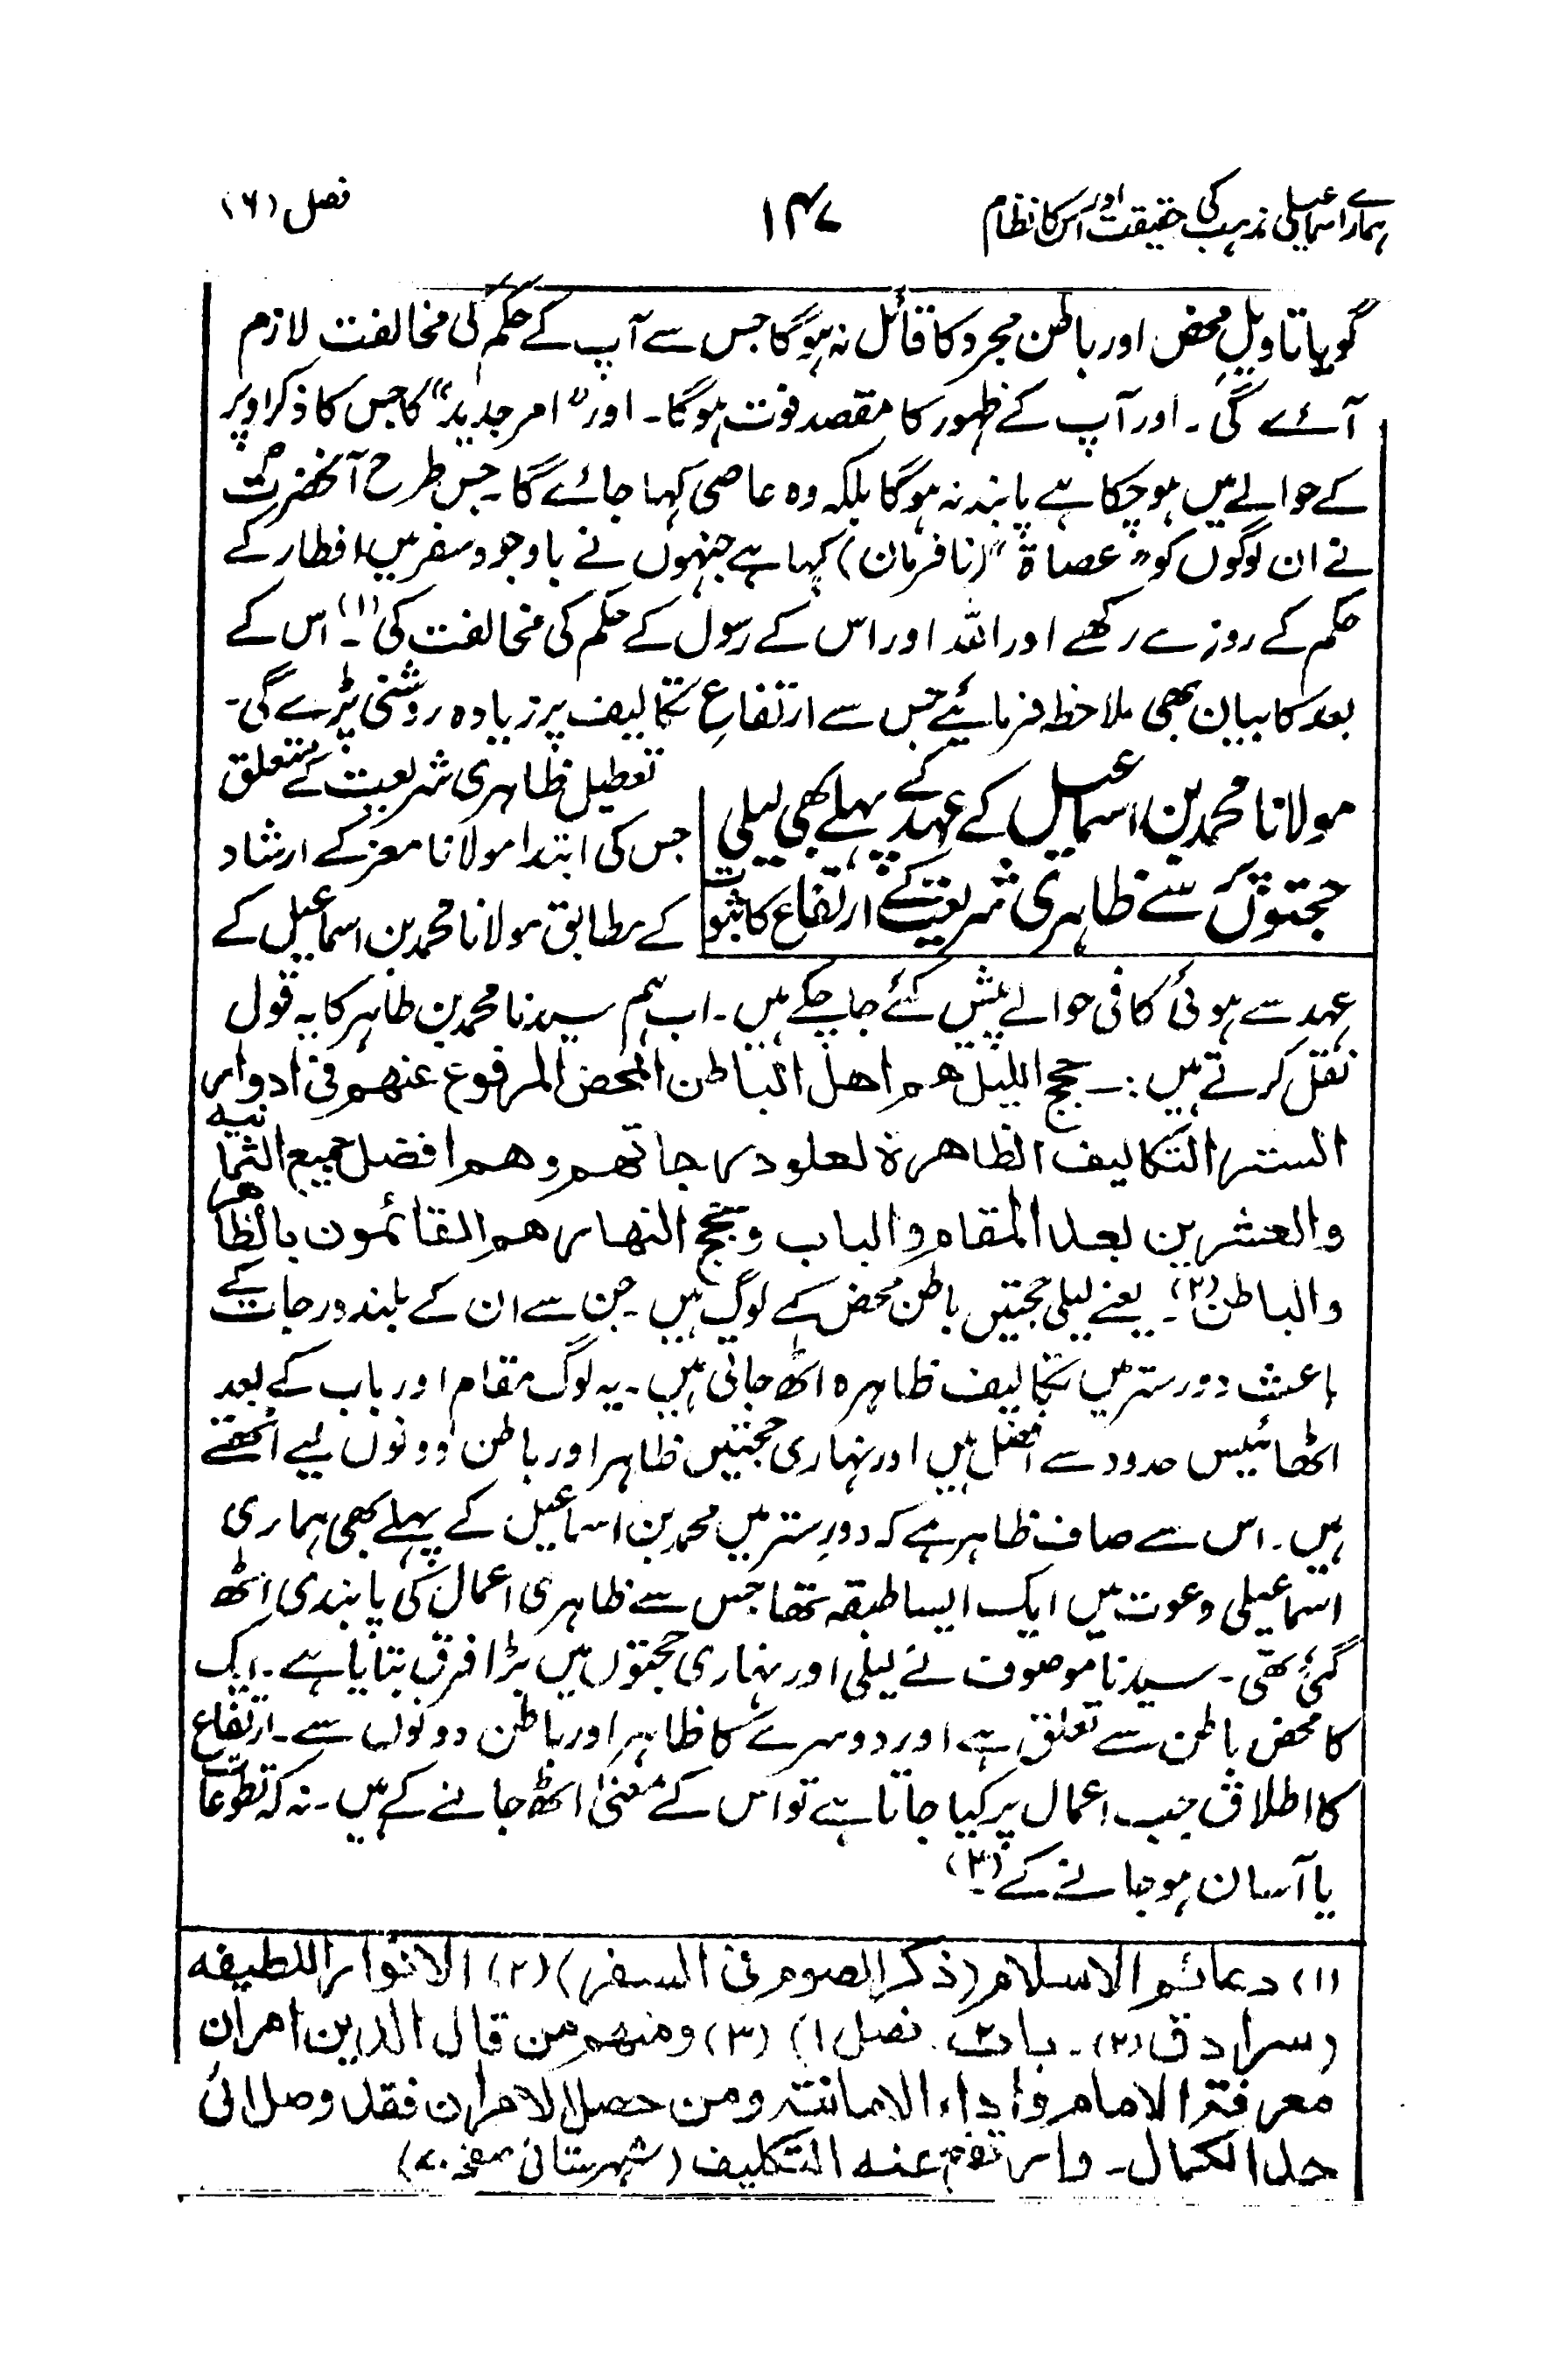 ہمارے اسماعیلی مذہب کی حقیقت اور اس کا نظام
۱۴۷
فصل (۶)
گویا تاویلِ محض اور باطن مجرد کا قائل نہ ہوگا جس سے آپ کے حکم کی مخالفت لازم
آئے گی۔ اور آپ کے ظہور کا مقصد فوت ہوگا۔ اور "امر جدید" کا جس کا ذکر اوپر
کے حوالے میں ہو چکا ہے پابند نہ ہوگا بلکہ وہ عاصی کہا جائے گا۔ جس طرح آنحضرتؐ
نے ان لوگوں کو "عصاۃ" (نافرمان) کہا ہے جنہوں نے باوجود سفر میں افطار کے
حکم کے روزے رکھے اور اللہ اور اس کے رسول کے حکم کی مخالفت کی(۱)۔ اس کے
بعد کا بیان بھی ملاحظہ فرمائیے جس سے ارتفاعِ تکالیف پر زیادہ روشنی پڑے گی۔
مولانا محمد بن اسماعیل کے عہد کے پہلے بھی لیلی
حجتوں سے ظاہری شریعت کے ارتفاع کا ثبوت
تعطیل ظاہری شریعت کے متعلق
جس کی ابتدا مولانا معز کے ارشاد
کے مطابق مولانا محمد بن اسماعیل کے
عہد سے ہوئی کافی حوالے پیش کئے جا چکے ہیں۔ اب ہم سیدنا محمد بن طاہر کا یہ قول
نقل کرتے ہیں :۔ حجج اللیل هم اهل الباطن المحض المرفوع عنهم فی ادوار
الستر التکالیف الظاهرة لعلو درجاتهم وهم افضل جمیع الثمانیه
والعشرین بعد المقام والباب وحجج النهار هم القائمون بالظاهر
والباطن(۲)۔ یعنے لیلی حجتیں باطن محض کے لوگ ہیں۔ جن سے ان کے بلند درجات کے
باعث دور ستر میں تکالیف ظاہرہ اٹھ جاتی ہیں۔ یہ لوگ مقام اور باب کے بعد
اٹھائیس حدود سے افضل ہیں اور نہاری حجتیں ظاہر اور باطن دونوں لیے اٹھتے
ہیں۔ اس سے صاف ظاہر ہے کہ دورِ ستر میں محمد بن اسماعیل کے پہلے بھی ہماری
اسماعیلی دعوت میں ایک ایسا طبقہ تھا جس سے ظاہری اعمال کی پابندی اٹھ
گئی تھی۔ سیدنا موصوف نے لیلی اور نہاری حجتوں میں بڑا فرق بتایا ہے۔ ایک
کا محض باطن سے تعلق ہے اور دوسرے کا ظاہر اور باطن دونوں سے۔ ارتفاع
کا اطلاق جب اعمال پر کیا جاتا ہے تو اس کے معنیٰ اٹھ جانے کے ہیں۔ نہ کہ تطوعات
یا آسان ہو جانے کے(۳)۔
(۱) دعائم الاسلام (ذکر الصوم فی السفر) (۲) الانوار اللطیفه
(سرادق (۲)۔ باب ۲ فصل ۱) (۳) ومنهم من قال الدین امران
معرفة الامام واداء الامانة ومن حصل الامران فقد وصل الی
حد الکمال۔ وارتفع عنه التکلیف (شہرستانی صفحہ ۷۰)